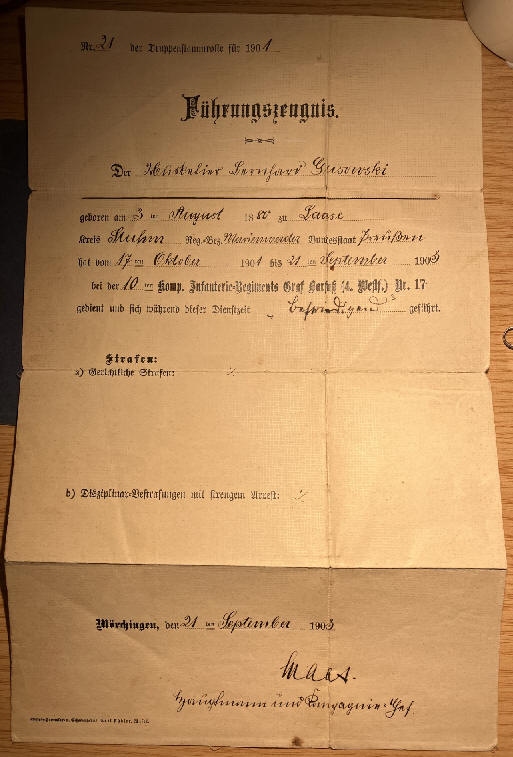 Nr. 21 der Truppenstammrolle für 1901
Führungszeugnis.
Der Musketier Bernhard Gusowski
geboren am 3 ten August 1880 zu Laase
Kreis Stuhm Reg.-Bez. Marienwerder Bundesstaat Preußen
hat vom 17 ten Oktober 1901 bis 21 ten September 1903
bei der 10 ten Komp. Infanterie-Regiments Graf Barfuß (4. Westf.) Nr. 17
gedient und sich während dieser Dienstzeit befriedigend geführt.
Strafen:
a) Gerichtliche Strafen: ./.
b) Disziplinar-Bestrafungen mit strengem Arrest: ./.
Mörchingen, den 21 ten September 1903
Hauptmann und Kompagnie-Chef.